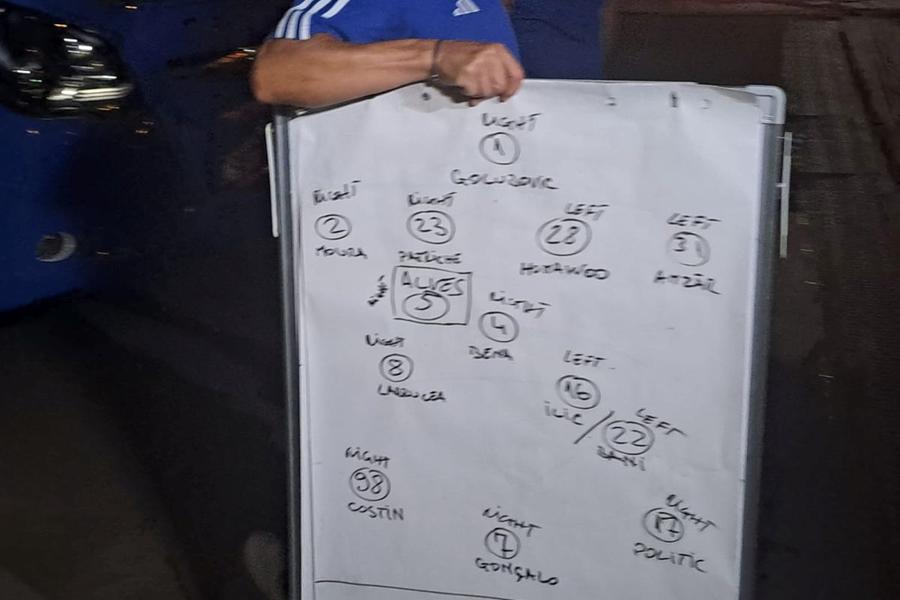 RIGHT
1
GOLUZOVIC
RIGHT
2
MOURA
RIGHT
23
PATRICHE
LEFT
28
LEFT
31
ALVES
5
RIGHT
4
BENA
RIGHT
8
LEFT
16
ILIC
/
LEFT
22
BANI
RIGHT
98
COSTIN
RIGHT
7
GONÇALO
RIGHT
17
POLITIC